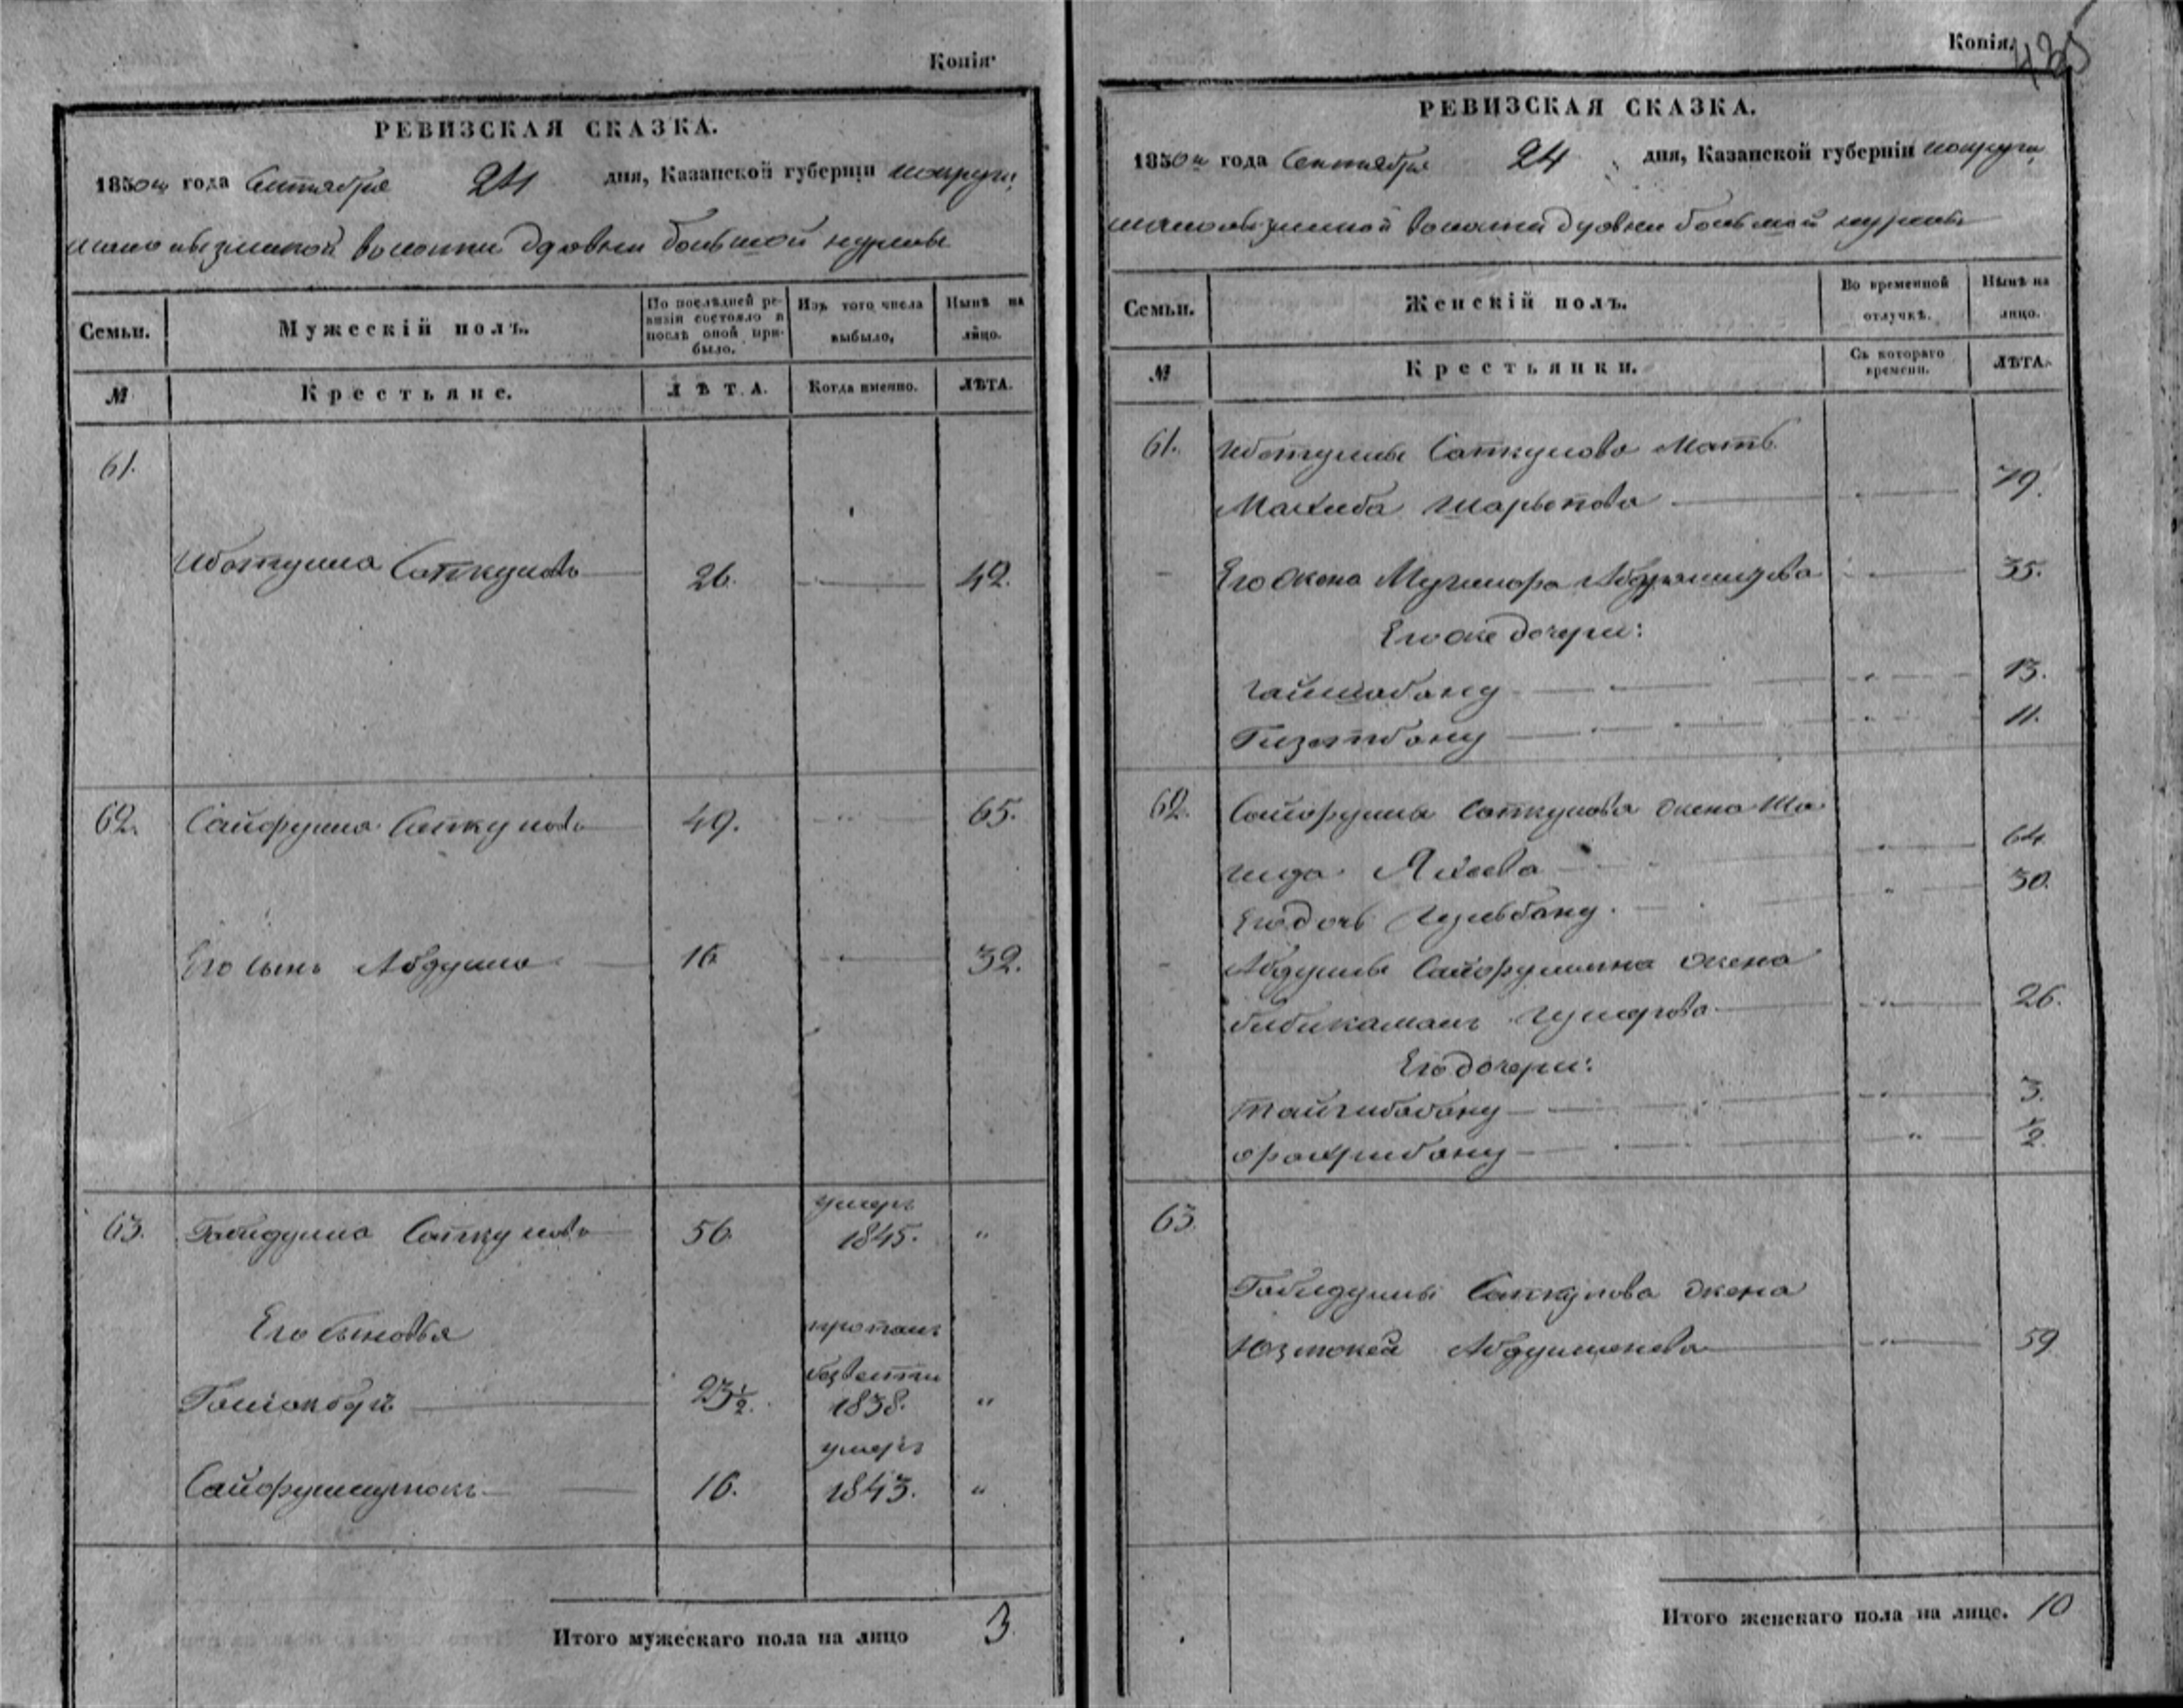 Копія
РЕВИЗСКАЯ СКАЗКА.
1850 го года Сентября 24 дня, Казанской губерніи
волости д овни большой нурмы
Семьи.
Мужескій полъ.
По послѣдней ревизіи состояло и послѣ оной прибыло.
Изъ того числа выбыло,
Нынѣ на лицо.
№
Крестьяне.
ЛѢТА.
Когда именно.
ЛѢТА.
61.
Ибатулла Саткуловъ 26. 42.
62. Сайфулла Саткуловъ 49. 65.
Его сынъ Абдулла 16 32.
63. Габидулла Саткуловъ 56. умеръ 1845. "
Его сыновья
23½. пропалъ безвести 1838. "
Сайфулмулюкъ 16. умеръ 1843. "
Итого мужескаго пола на лицо 3
Копія.
435
РЕВИЗСКАЯ СКАЗКА.
1850 го года Сентября 24 дня, Казанской губерніи
волости большой нурмы
Семьи.
Женскій полъ.
Во временной отлучкѣ.
Нынѣ на лицо.
№
Крестьянки.
Съ котораго времени.
ЛѢТА.
61. Ибатуллы Саткулова Мать
Махиба Шарыпова 79.
Его жена 35.
Его же дочери:
Гайшабану 13.
Гизятбану 11.
62. Сайфуллы Саткулова жена Ша
гида Яхеева 64.
Его дочь Гульбану. 30.
Абдуллы Сайфуллина жена
бибикамалъ Гумерова 26.
Его дочери:
Тайгибабану 3.
фахрибану ½.
63.
Габидуллы Саткулова жена
Юзмокей 59
Итого женскаго пола на лице. 10